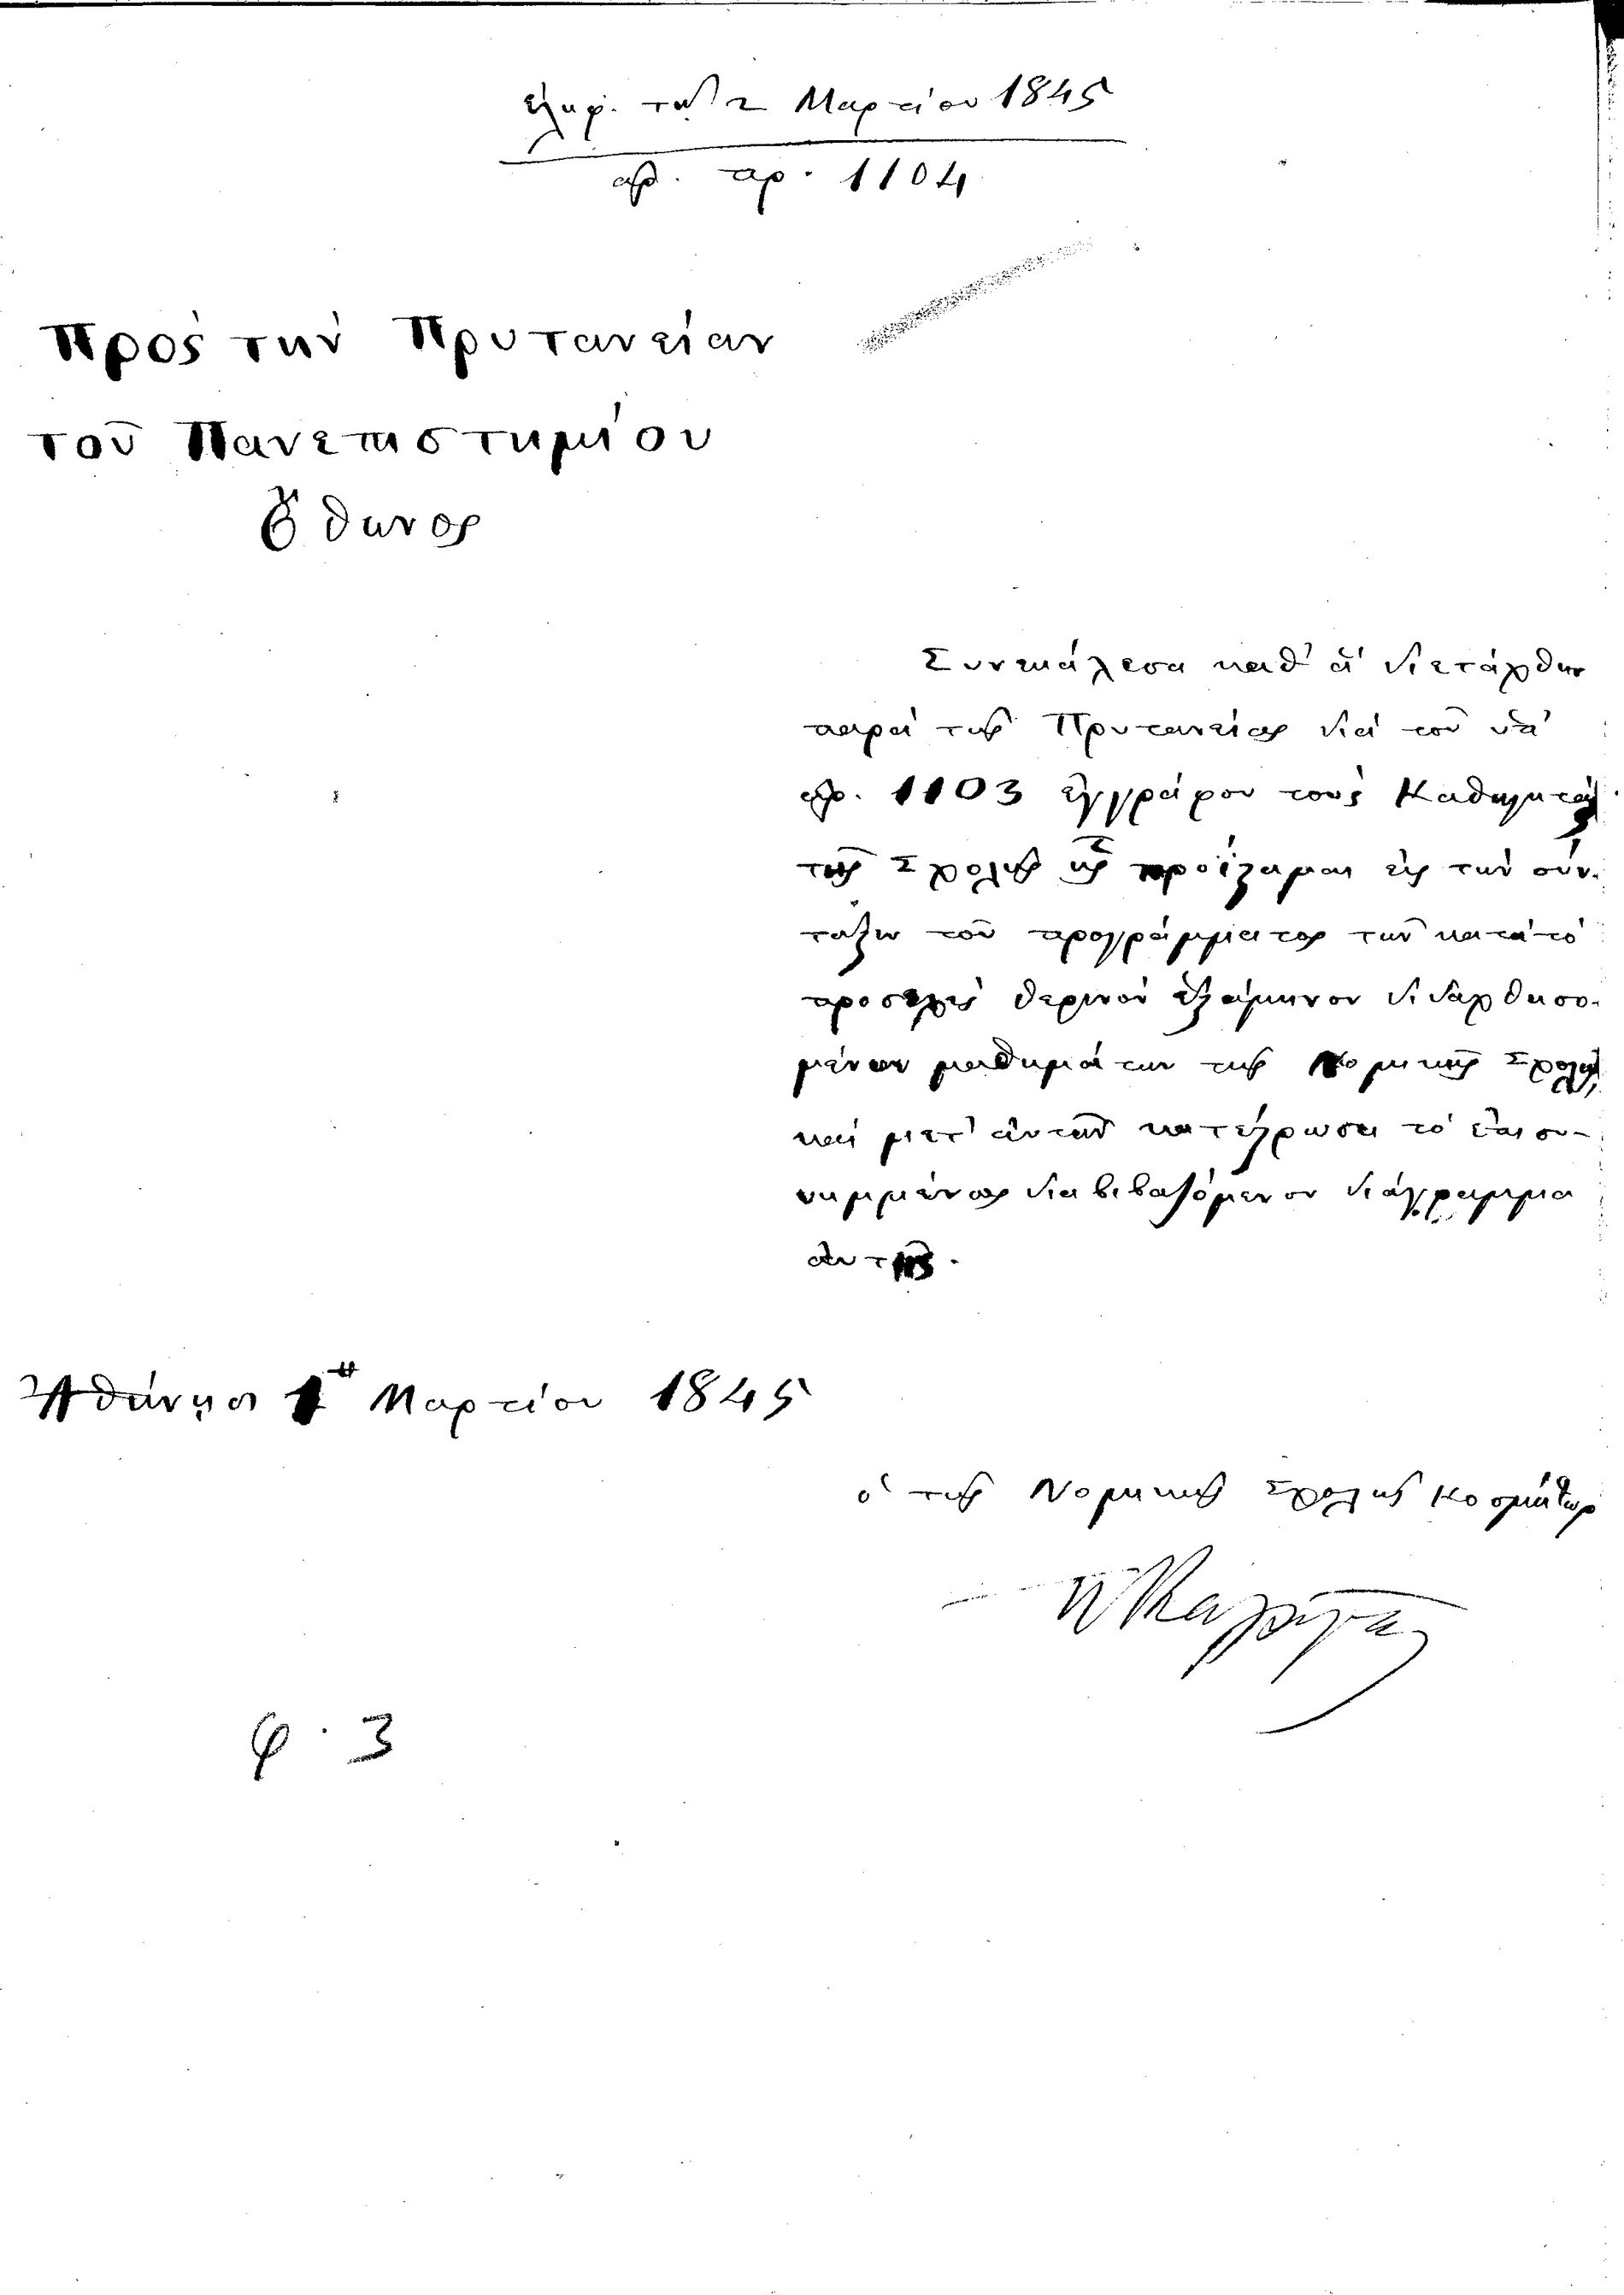 ἐλήφ. τῇ 2 Μαρτίου 1845
ἀρ. πρ. 1104
Πρὸς τὴν Πρυτανείαν
τοῦ Πανεπιστημίου
Ὄθωνος
Συνεκάλεσα καθ' ἃ διετάχθην
παρὰ τῆς Πρυτανείας διὰ τοῦ ὑπ'
ἀρ. 1103 ἐγγράφου τοὺς Καθηγητὰς
τῆς Σχολῆς ἧς προΐσταμαι εἰς τὴν σύν-
ταξιν τοῦ προγράμματος τῶν κατὰ τὸ
προσεχὲς θερινὸν ἑξάμηνον διδαχθησο-
μένων μαθημάτων τῆς Νομικῆς Σχολῆς
καὶ μετ' αὐτῶν κατέστρωσα τὸ ἐπισυ-
νημμένως διαβιβαζόμενον διάγραμμα
αὐτῆς.
Ἀθήνησι 1η Μαρτίου 1845
ὁ τῆς Νομικῆς Σχολῆς Κοσμήτωρ
Π Καλλιγᾶς
φ. 3